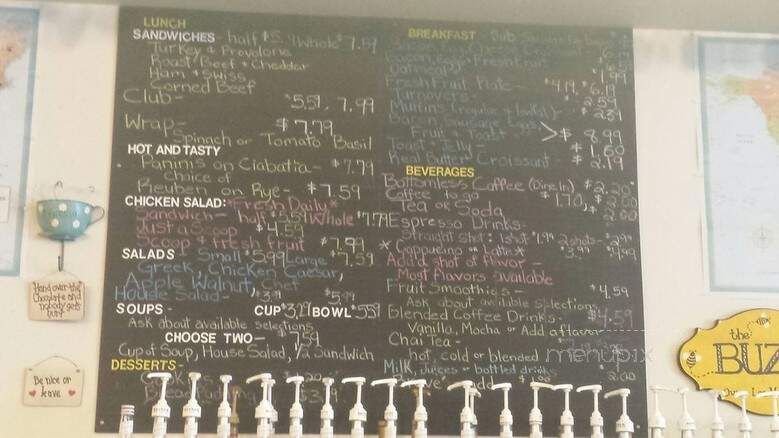 LUNCH
SANDWICHES - half $5. Whole $7.59
Turkey & Provolone
Roast Beef & Cheddar
Ham & Swiss
Corned Beef
Club - $5.59, 7.99
Wrap - $7.79
Spinach or Tomato Basil
HOT AND TASTY
Paninis on Ciabatia - $7.79
Choice of
Reuben on Rye - $7.59
CHICKEN SALAD: *Fresh Daily*
Sandwich - half $5.59 Whole $7.79
Just a Scoop $4.59
Scoop & fresh fruit $7.99
SALADS Small $5.99 Large $7.59
Greek, Chicken Caesar,
Apple Walnut, Chef
House Salad - $3.79 $5.79
SOUPS - CUP $3.29 BOWL $5.59
Ask about available selections
CHOOSE TWO - $7.59
Cup of Soup, House Salad, 1/2 Sandwich
DESSERTS -
Bread Pudding $3.49
BREAKFAST
Bacon, Egg & Fresh Fruit
Oatmeal $1.99
Fresh Fruit Plate - $4.19, $6.19
Turnovers - $2.59
Muffins (regular & loaded) - $2.39
Fruit & Toast > $8.99
Toast & Jelly - $1.60
Real Butter Croissant - $2.19
BEVERAGES
Bottomless Coffee (Dine In) $2.20
Coffee to go $1.70, $2.00
Tea or Soda 2.00
Espresso Drinks -
Straight Shot: 1 shot $1.99 2 shots - $2.99
*Cappucino or Latte* $3.99 $4.99
Add a shot of flavor -
Most flavors available
Fruit Smoothies - $4.59
Ask about available selections
Blended Coffee Drinks - $4.59
Vanilla, Mocha or Add a flavor
Chai Tea -
hot, cold or blended
Milk, Juices or bottled drinks 2.00
menupix
Hand over the
Chocolate and
nobody gets
hurt
Be nice or
leave
the
BUZZ